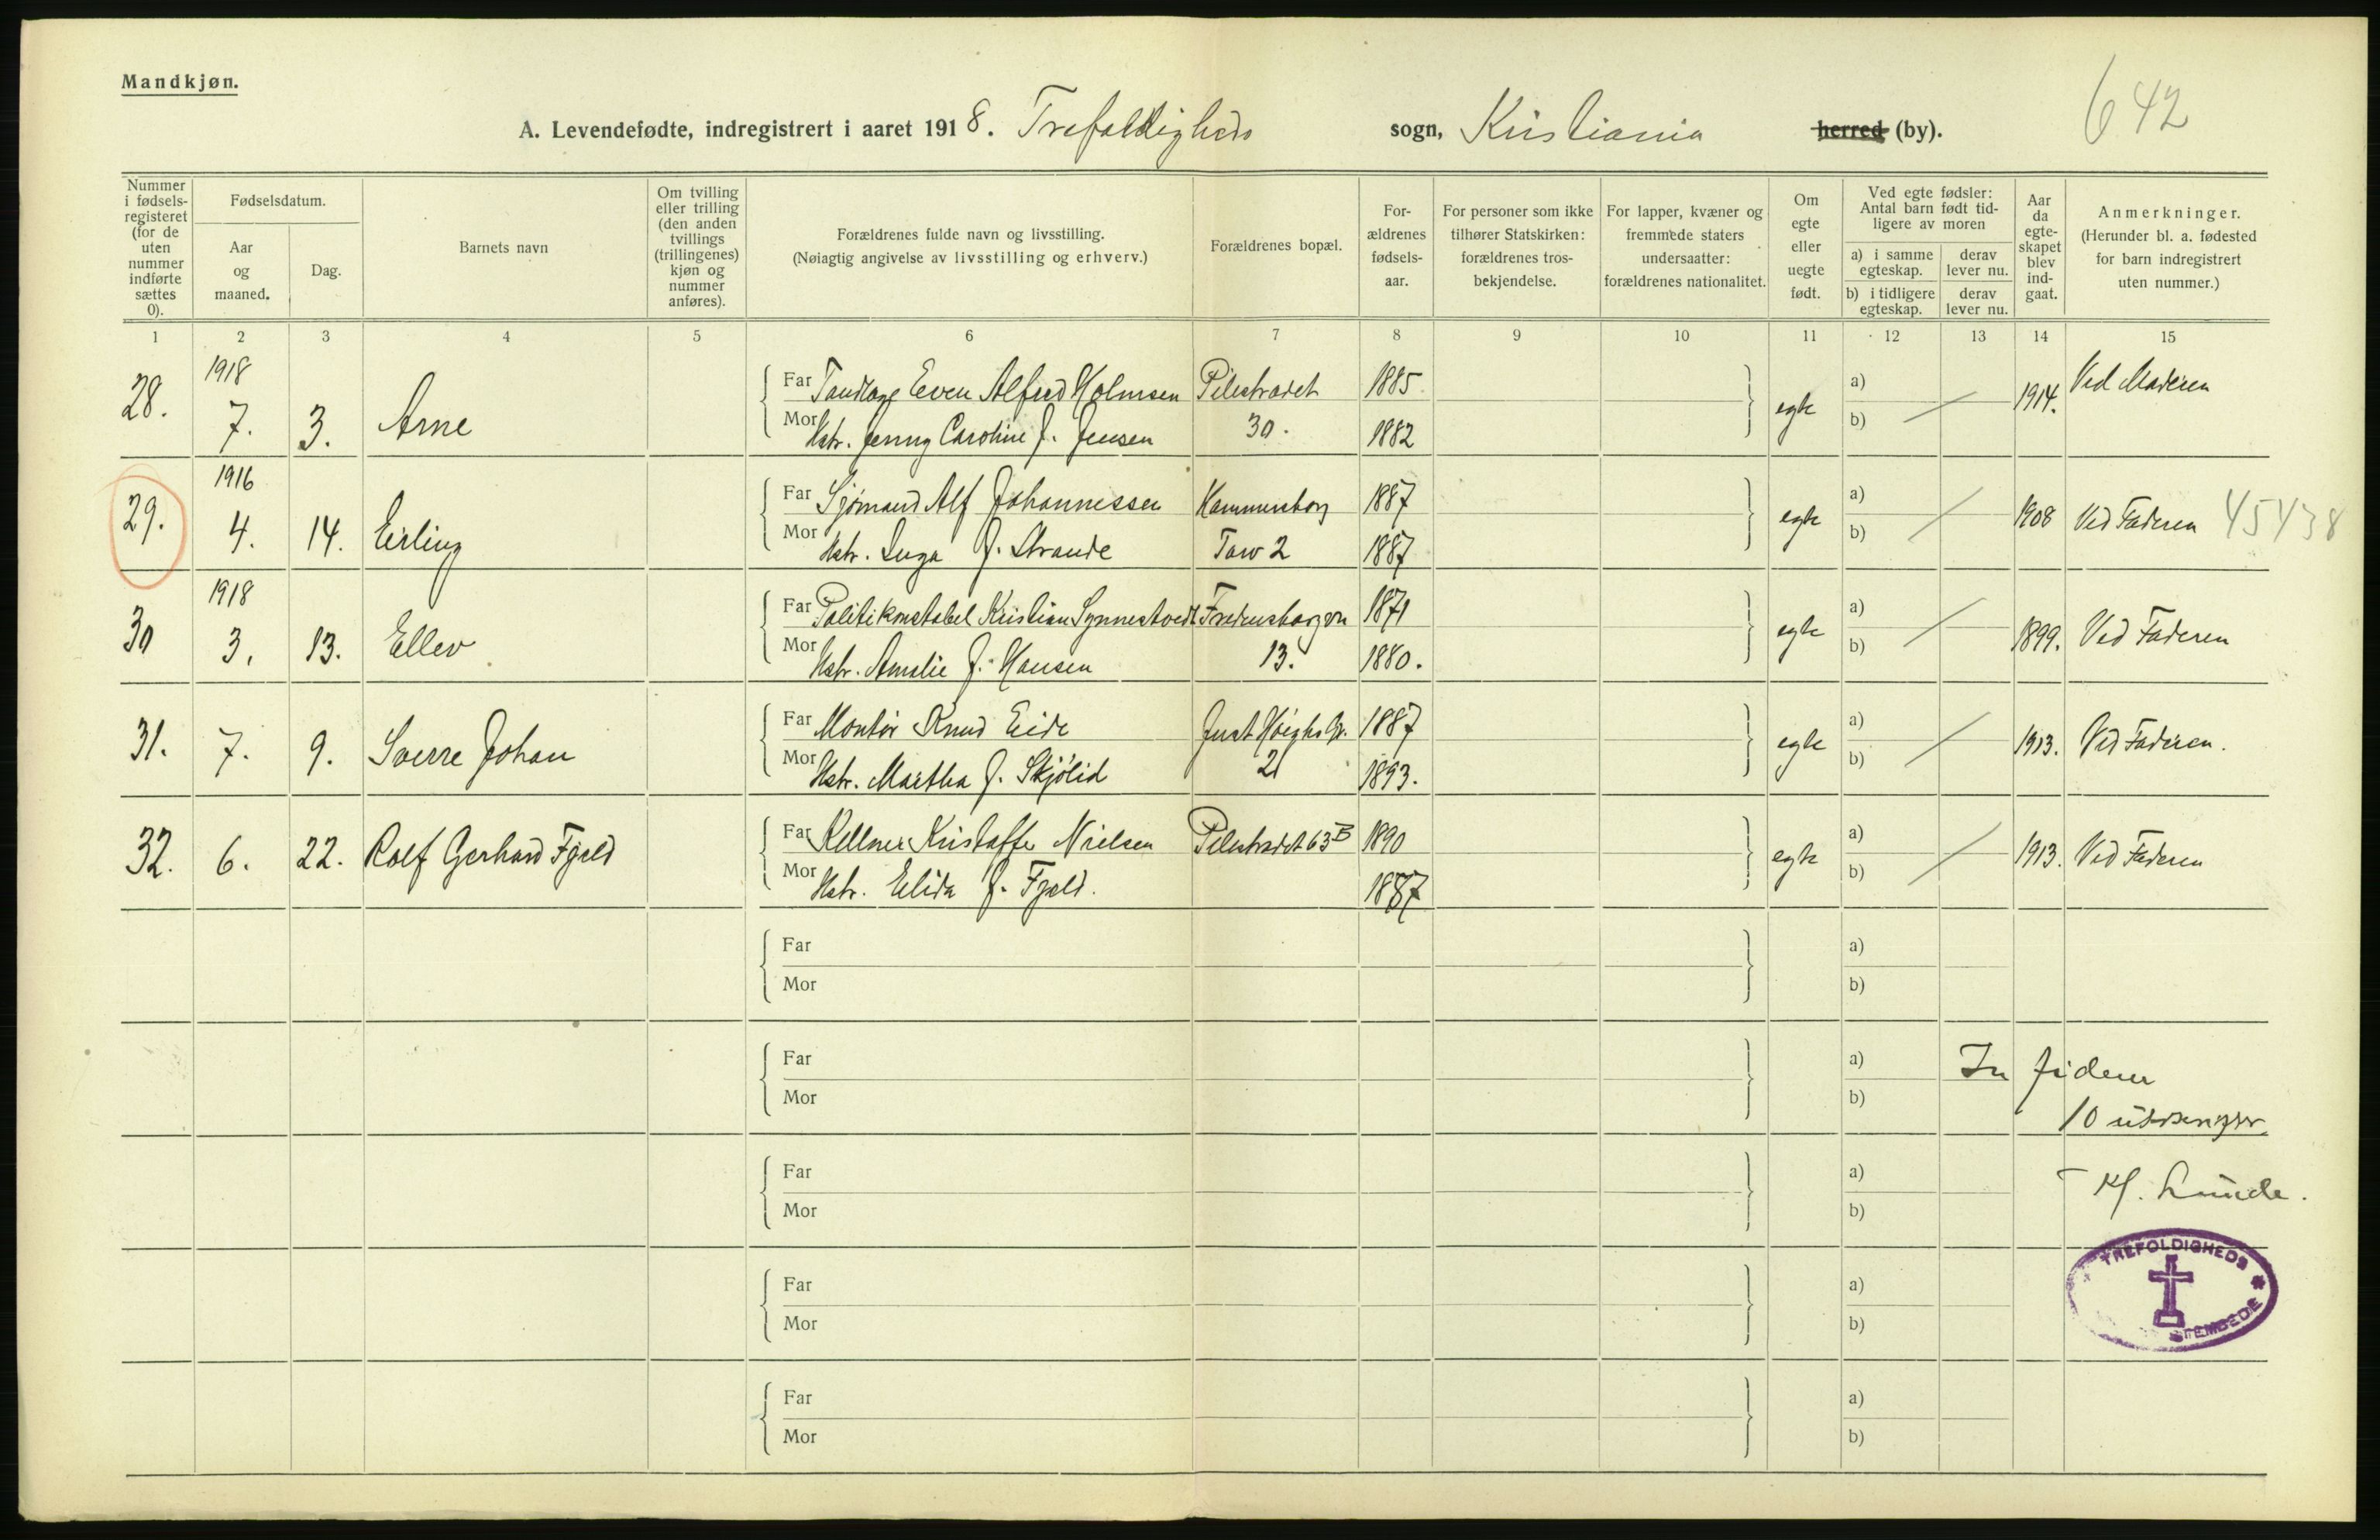 Mandkjøn.
642
A. Levendefødte, indregistrert i aaret 1918. Trefoldigheds sogn, Kristiania herred (by).
Nummer i fødsels-registeret (for de uten nummer indførte sættes 0).
Fødselsdatum.
Aar og maaned.
Dag.
Barnets navn
Om tvilling eller trilling (den anden tvillings (trillingenes) kjøn og nummer anføres).
Forældrenes fulde navn og livsstilling.
(Nøiagtig angivelse av livsstilling og erhverv.)
Forældrenes bopæl.
For-ældrenes fødsels-aar.
For personer som ikke tilhører Statskirken: forældrenes tros-bekjendelse.
For lapper, kvæner og fremmede staters undersaatter: forældrenes nationalitet.
Om egte eller uegte født.
Ved egte fødsler: Antal barn født tid-ligere av moren
a) i samme egteskap.
derav lever nu.
b) i tidligere egteskap.
derav lever nu.
Aar da egte-skapet blev ind-gaat.
Anmerkninger.
(Herunder bl. a. fødested for barn indregistrert uten nummer.)
1 2 3 4 5 6 7 8 9 10 11 12 13 14 15
1918
28. 7. 3. Arne
Far Tandlæge Even Alfred Holmsen Pilestrædet 1885
Mor Hstr. Jenny Caroline f. Jensen 30. 1882
egte a) b) 1914. Ved Moderen
1916
29. 4. 14. Erling
Far Sjømand Alf Johannessen Hammersborg 1887
Mor Hstr. Inga f. Strande Torv 2 1887
egte a) b) 1908 Ved Faderen 45438
1918
30 3. 13. Ellev
Far Politikonstabel Kristian Synnestvedt Fredensborgvn 1871
Mor Hstr. Amalie f. Hansen 13. 1880.
egte a) b) 1899. Ved Faderen
31. 7. 9. Sverre Johan
Far Montør Knud Eide Just Høeghs G. 1887
Mor Hstr. Martha f. Skjølid 21 1893.
egte a) b) 1913. Ved Faderen.
32. 6. 22. Rolf Gerhard Fjeld
Far Kellner Kristoffer Nielsen Pilestrædet 63B 1890
Mor Hstr. Elida f. Fjeld. 1887
egte a) b) 1913. Ved Faderen
Far a)
Mor b)
Far a) In fidem
Mor b) 10
Far a) Kf. Lunde.
Mor b)
Far a)
Mor b)
TREFOLDIGHEDS
Far a)
Mor b)